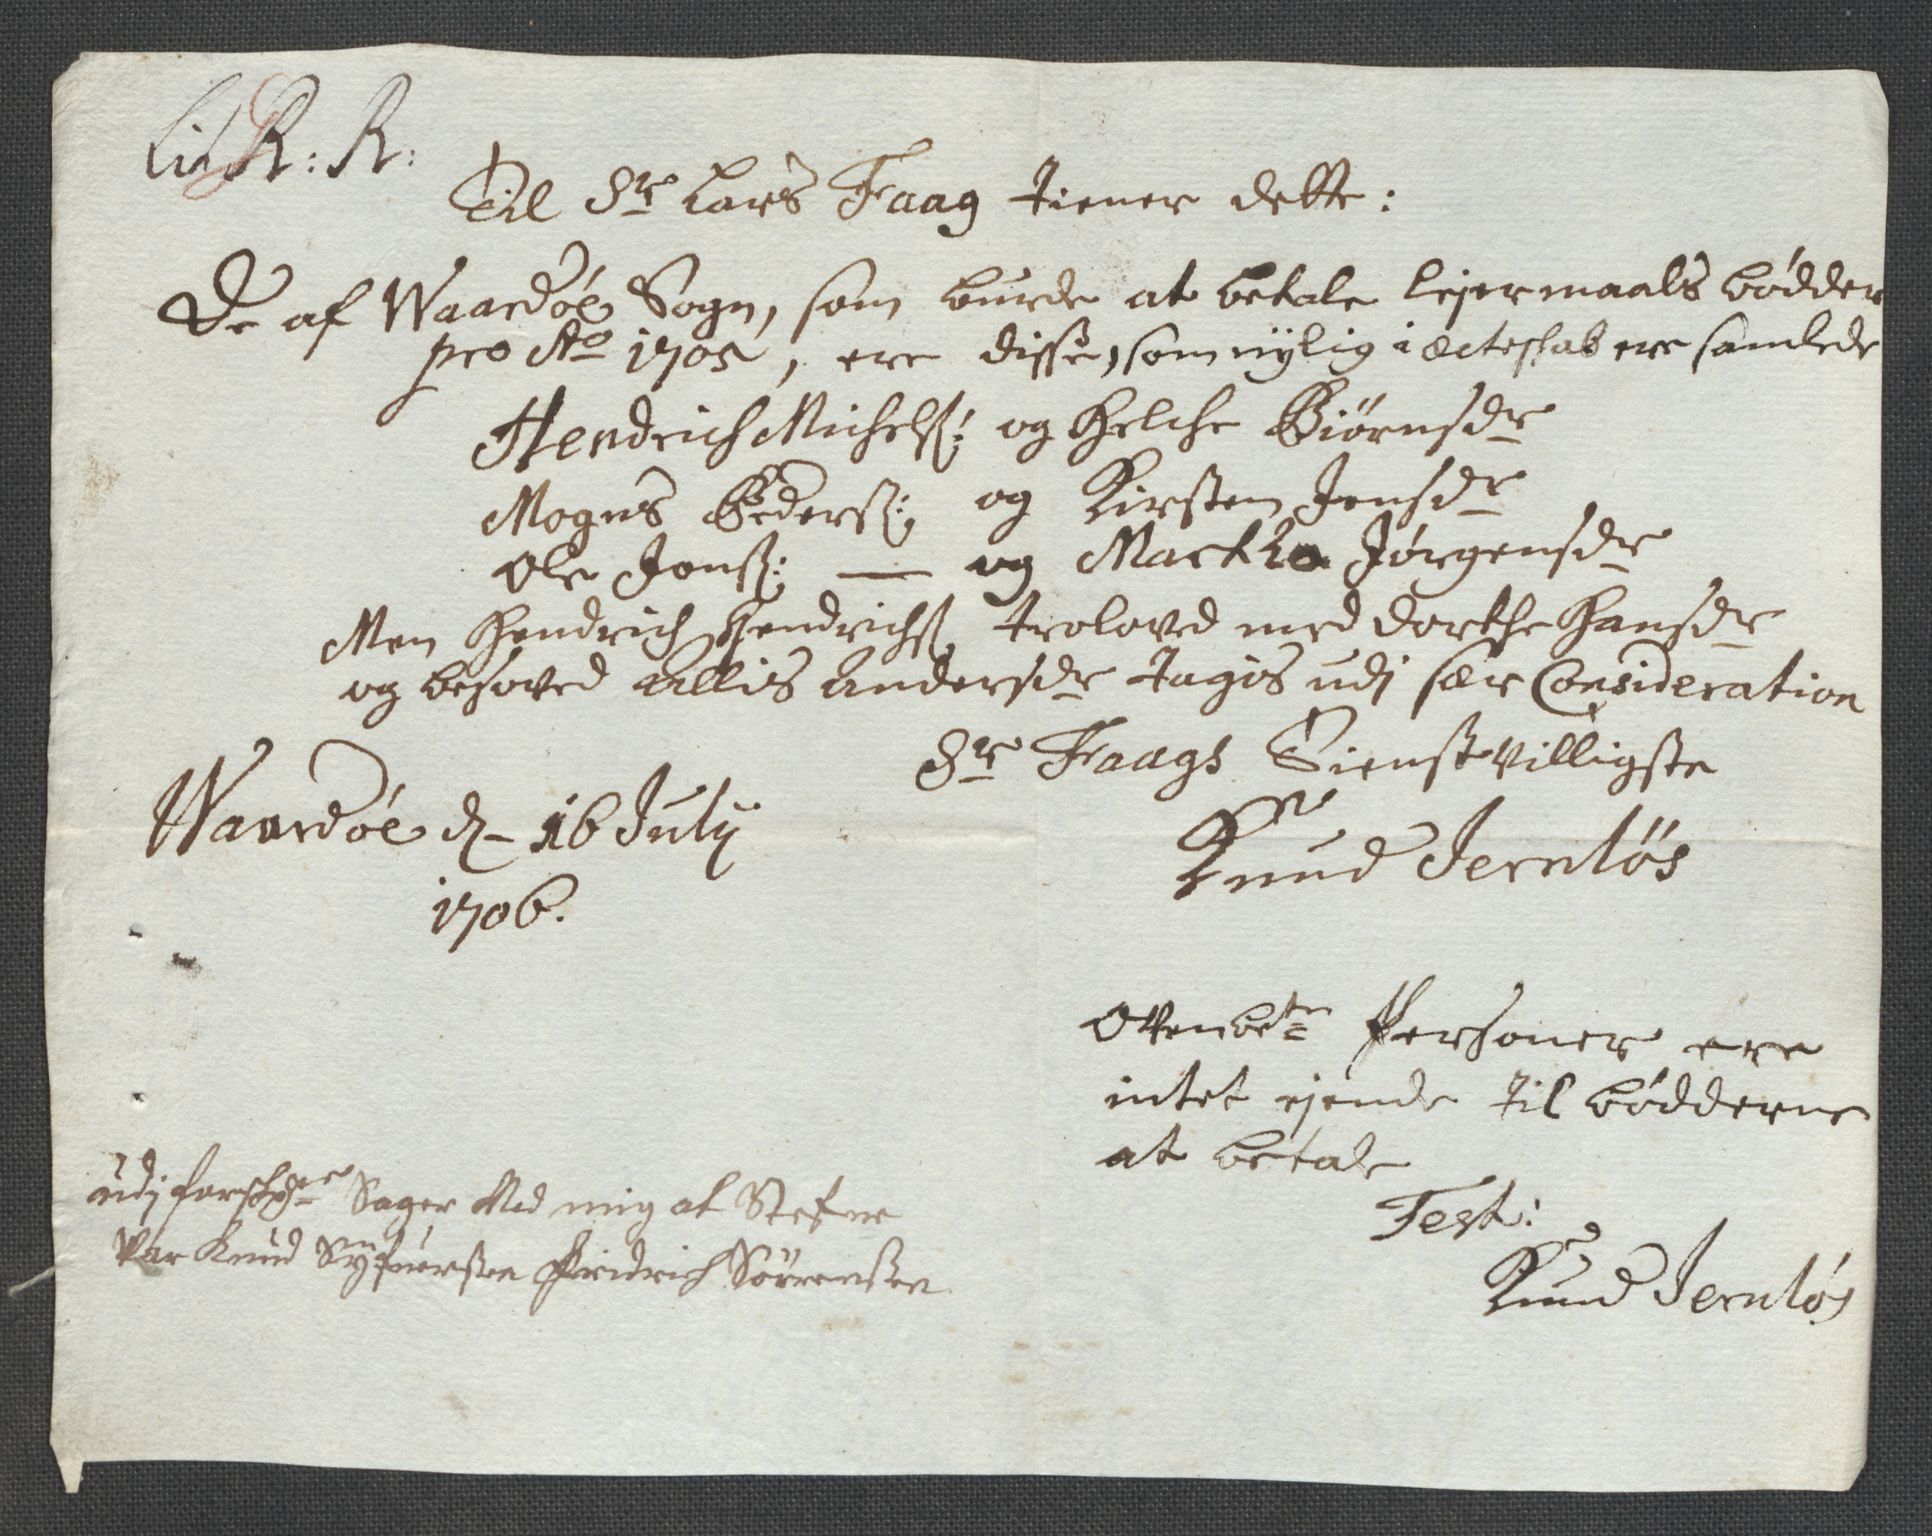 Lit R: R:
Til Sr Lars Faag tiener dette:
De af Waardøe Sogn, som burde at betale lejermaals bødder
pro Ao 1705, ere disse, som nylig i ecteskab ere samlede
Hendrich Michelß: og Helche Biørnsdr
Mogns Pederß: og Kirsten Jensdr
Ole Jonß: — og Martha Jørgensdr
Men Hendrich Hendrichß, troloved med Dorthe Hansdr
og besoved Allis Andersdr tagis udj sær Consideration
Sr Faags Tienstvilligste
Knud Jernløs
Waardøe d 16 Julij
1706.
Ovenbete Personer ere
intet ejende til bødderne
at betale
Test:
Knud Jernløs
udj Sager Ved mig at Stefne
Var Knud Syfuersen Fridrich Sörrensen